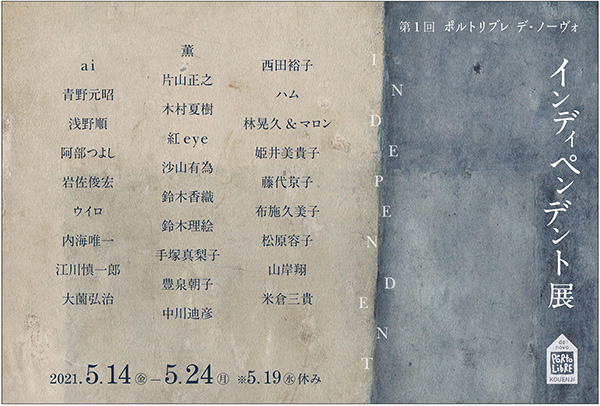 第1回 ポルトリブレ デ・ノーヴォ
インディペンデント展
INDEPENDENT
ai
青野元昭
浅野順
阿部つよし
岩佐俊宏
ウイロ
内海唯一
江川慎一郎
大薗弘治
薫
片山正之
木村夏樹
紅eye
沙山有為
鈴木香織
鈴木理絵
手塚真梨子
豊泉朝子
中川迪彦
西田裕子
ハム
林晃久&マロン
姫井美貴子
藤代京子
布施久美子
松原容子
山岸翔
米倉三貴
2021.5.14㊎—5.24㊊ ※5.19㊌休み
de novo
PORTO
LIBRE
KOUENJI